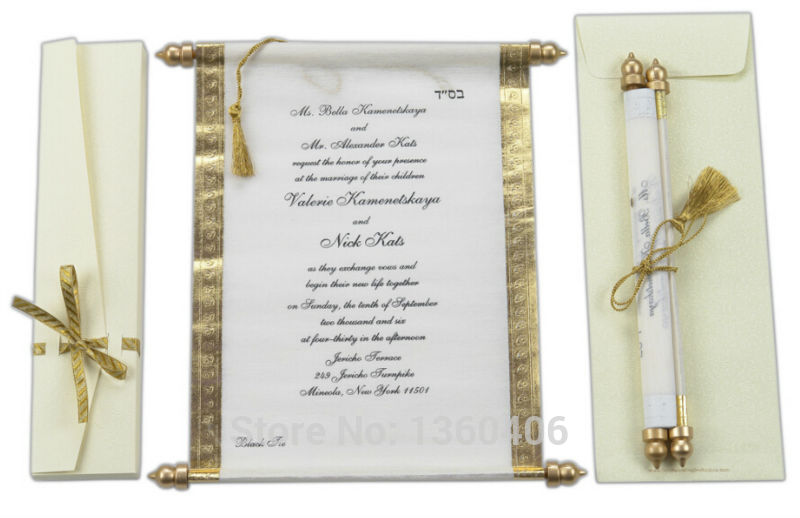 בס״ד
Ms. Bella Kamenetskaya
and
Mr. Alexander Kats
request the honor of your presence
at the marriage of their children
Valerie Kamenetskaya
and
Nick Kats
as they exchange vows and
begin their new life together
on Sunday, the tenth of September
two thousand and six
at four-thirty in the afternoon
Jericho Terrace
249 Jericho Turnpike
Mineola, New York 11501
Store No: 1360406
Black Tie